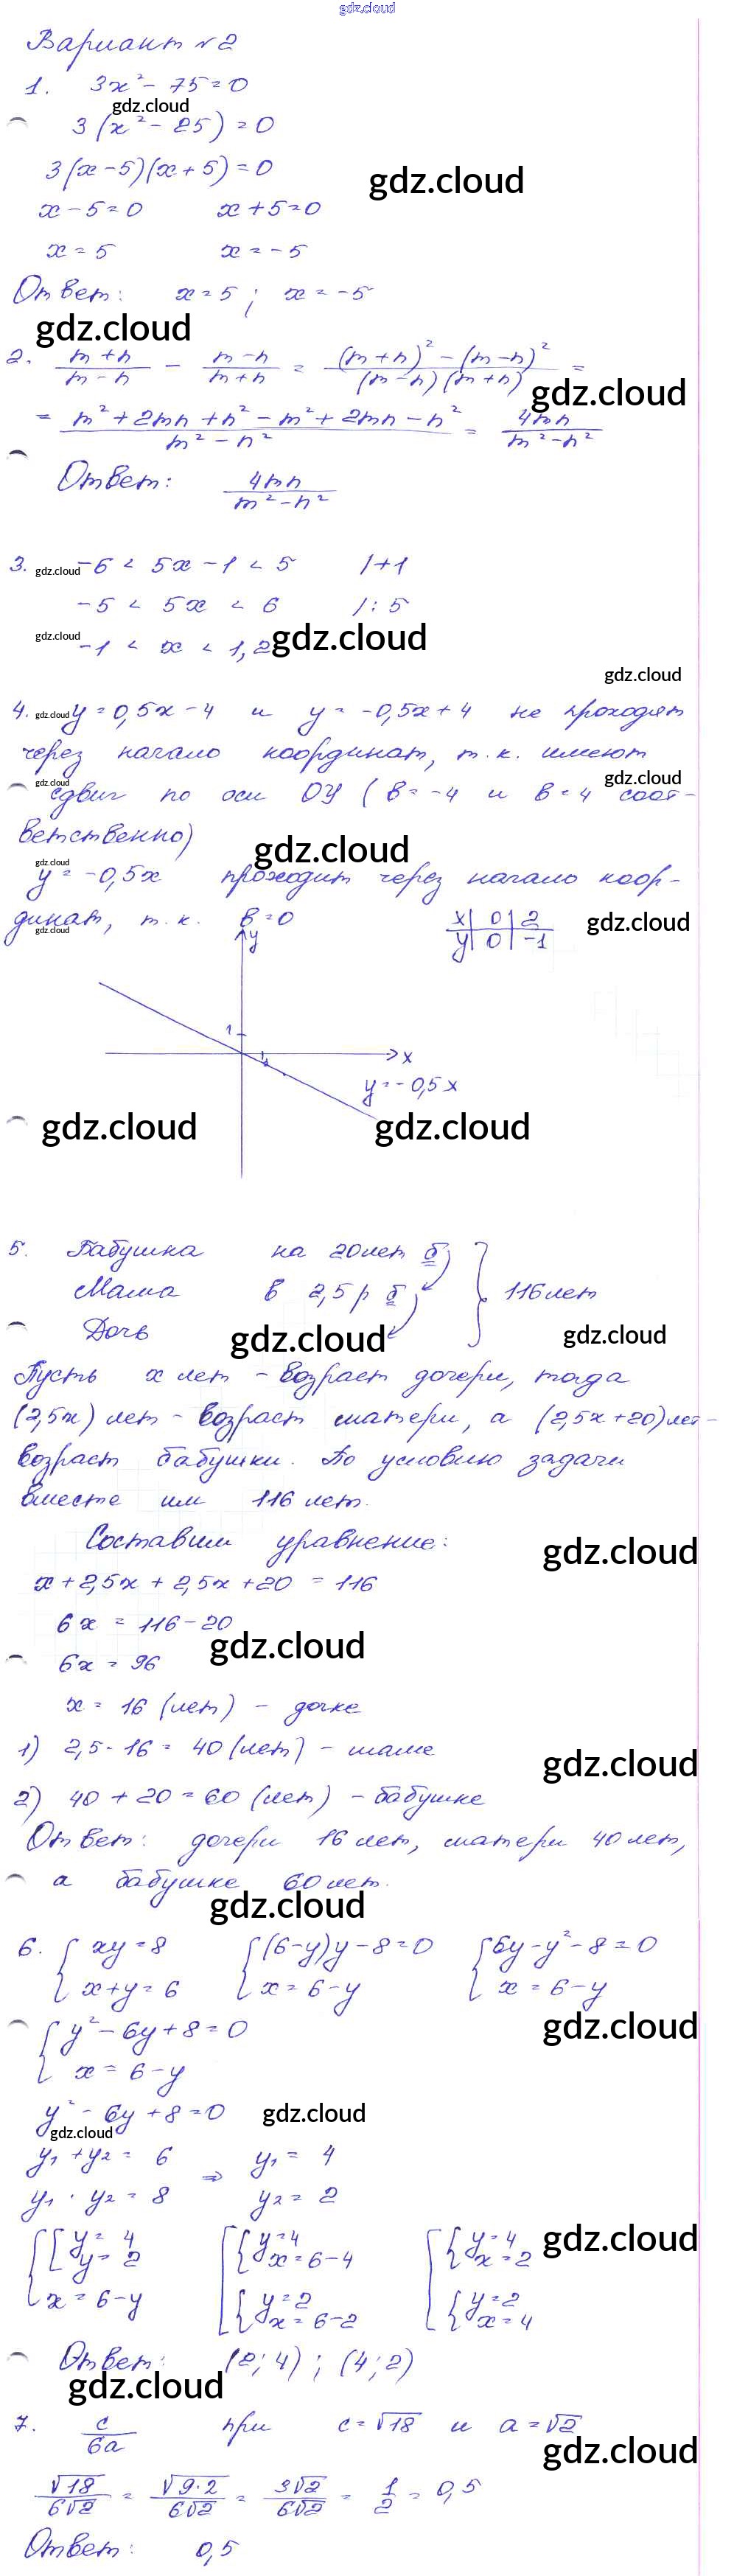 gdz.cloud
Вариант №2
1. 3x² - 75 = 0
gdz.cloud
3(x² - 25) = 0
3(x - 5)(x + 5) = 0
gdz.cloud
x - 5 = 0 x + 5 = 0
x = 5 x = -5
Ответ: x = 5 ; x = -5
gdz.cloud
2. (m + n)/(m - n) - (m - n)/(m + n) = ((m + n)² - (m - n)²)/((m - n)(m + n)) =
gdz.cloud
= (m² + 2mn + n² - m² + 2mn - n²)/(m² - n²) = 4mn/(m² - n²)
Ответ: 4mn/(m² - n²)
3. gdz.cloud -6 < 5x - 1 < 5 / +1
-5 < 5x < 6 / : 5
gdz.cloud -1 < x < 1,2 gdz.cloud
gdz.cloud
4. gdz.cloud y = 0,5x - 4 и y = -0,5x + 4 не проходят
через начало координат, т.к. имеют
gdz.cloud gdz.cloud
сдвиг по оси OY (в = -4 и в = 4 соот-
ветственно)
gdz.cloud gdz.cloud
y = -0,5x проходит через начало коор-
динат, т.к. в = 0 x | 0 | 2 gdz.cloud
gdz.cloud y | 0 | -1
y
1
1 x
y = -0,5x
gdz.cloud gdz.cloud
5. Бабушка на 20 лет б
Мама в 2,5 р б 116 лет
Дочь gdz.cloud gdz.cloud
Пусть x лет - возраст дочери, тогда
(2,5x) лет - возраст матери, а (2,5x + 20) лет -
возраст бабушки. По условию задачи
вместе им 116 лет.
Составим уравнение: gdz.cloud
x + 2,5x + 2,5x + 20 = 116
6x = 116 - 20
gdz.cloud
6x = 96
x = 16 (лет) - дочке
1) 2,5 · 16 = 40 (лет) - маме gdz.cloud
2) 40 + 20 = 60 (лет) - бабушке
Ответ: дочери 16 лет, матери 40 лет,
а бабушке 60 лет.
gdz.cloud
6. { xy = 8 { (6-y)y - 8 = 0 { 6y - y² - 8 = 0
x + y = 6 x = 6 - y x = 6 - y
gdz.cloud
{ y² - 6y + 8 = 0
x = 6 - y
y² - 6y + 8 = 0 gdz.cloud
gdz.cloud
y₁ + y₂ = 6 ⇒ y₁ = 4
y₁ · y₂ = 8 y₂ = 2
{ [ y = 4 [ { y = 4 [ { y = 4 gdz.cloud
y = 2 x = 6 - 4 x = 2
x = 6 - y { y = 2 { y = 2
x = 6 - 2 x = 4
Ответ: (2; 4) ; (4; 2)
gdz.cloud
7. c/6a при c = √18 и a = √2
gdz.cloud
√18/6√2 = √9·2/6√2 = 3√2/6√2 = 1/2 = 0,5
Ответ: 0,5